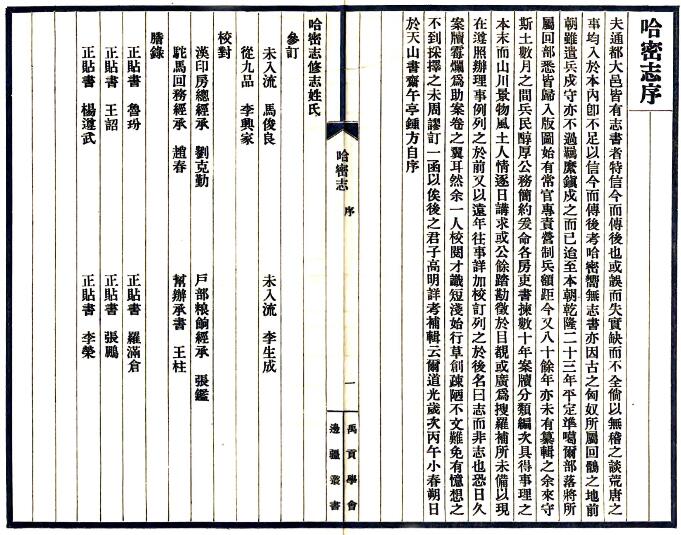 哈密志序
夫通都大邑皆有志書者特信今而傳後也或誤而失實缺而不全倘以無稽之談荒唐之
事均入於本內卽不足以信今而傳後考哈密嚮無志書亦因古之匈奴所屬回鶻之地前
朝雖遣兵戍守亦不過羈縻鎭戍之而已迨至本朝乾隆二十三年平定準噶爾部落將所
屬回部悉皆歸入版圖始有常官專責營制兵額距今又八十餘年亦未有纂輯之余來守
斯土數月之間兵民醇厚公務簡約爰命各房吏書揀數十年案牘分類編次具得事理之
本末而山川景物風土人情逐日講求或公餘踏勘徵於目覩或廣爲搜羅補所未備以現
在遵照辦理事例列之於前又以遠年往事詳加校訂列之於後名曰志而非志也恐日久
案牘霉爛爲助案卷之翼耳然余一人校閱才識短淺始行草創疎陋不文難免有憶想之
不到採擇之未周謬訂一函以俟後之君子高明詳考補輯云爾道光歲次丙午小春朔日
於天山書齋午亭鍾方自序
哈密志
序
一
禹貢學會
邊疆叢書
哈密志修志姓氏
參訂
未入流 馬俊良
未入流 李生成
從九品 李興家
校對
漢印房總經承 劉克勤
戶部粮餉經承 張鑑
駝馬回務經承 趙春
幫辦承書 王柱
謄錄
正貼書 魯玢
正貼書 羅滿倉
正貼書 王詔
正貼書 張鵬
正貼書 楊遵武
正貼書 李榮